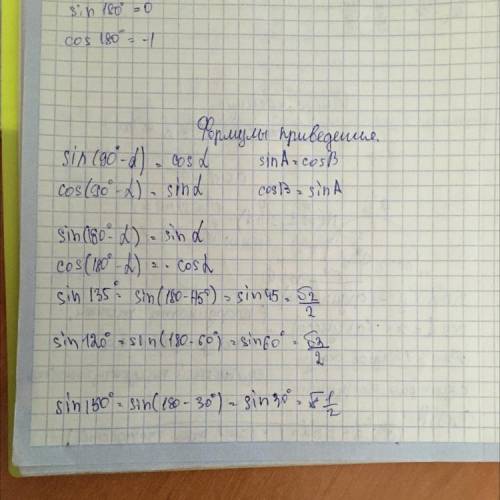 sin 180° = 0
cos 180° = -1
Формулы приведения.
sin(90°-α) = cos α    sinA = cosB
cos(90°-α) = sin α    cosB = sinA
sin(180°-α) = sin α
cos(180°-α) = -cos α
sin 135° = sin(180-45°) = sin 45 = √2/2
sin 120° = sin(180-60°) = sin 60° = √3/2
sin 150° = sin(180-30°) = sin 30° = 1/2